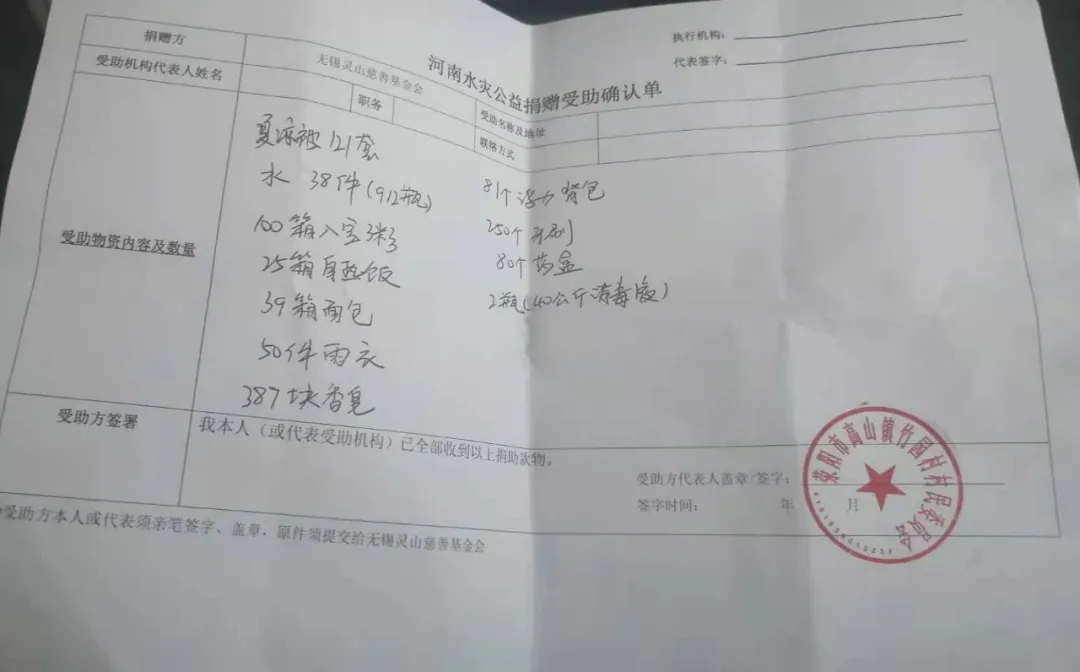 河南水灾公益捐赠受助确认单
执行机构：
代表签字：
捐赠方
无锡灵山慈善基金会
受助名称及地址
受助机构代表人姓名
职务
联络方式
受助物资内容及数量
夏凉被 121套
水 38件(912瓶)
100箱八宝粥
25箱自热饭
39箱面包
50件雨衣
387块香皂
81个浮力背包
250个牙刷
80个药盒
2瓶(40公斤消毒液)
受助方签署
我本人（或代表受助机构）已全部收到以上捐助款物。
受助方代表人盖章/签字：
签字时间： 年 月
荥阳市高山镇竹园村村民委员会
受助方本人或代表须亲笔签字、盖章，原件须提交给无锡灵山慈善基金会